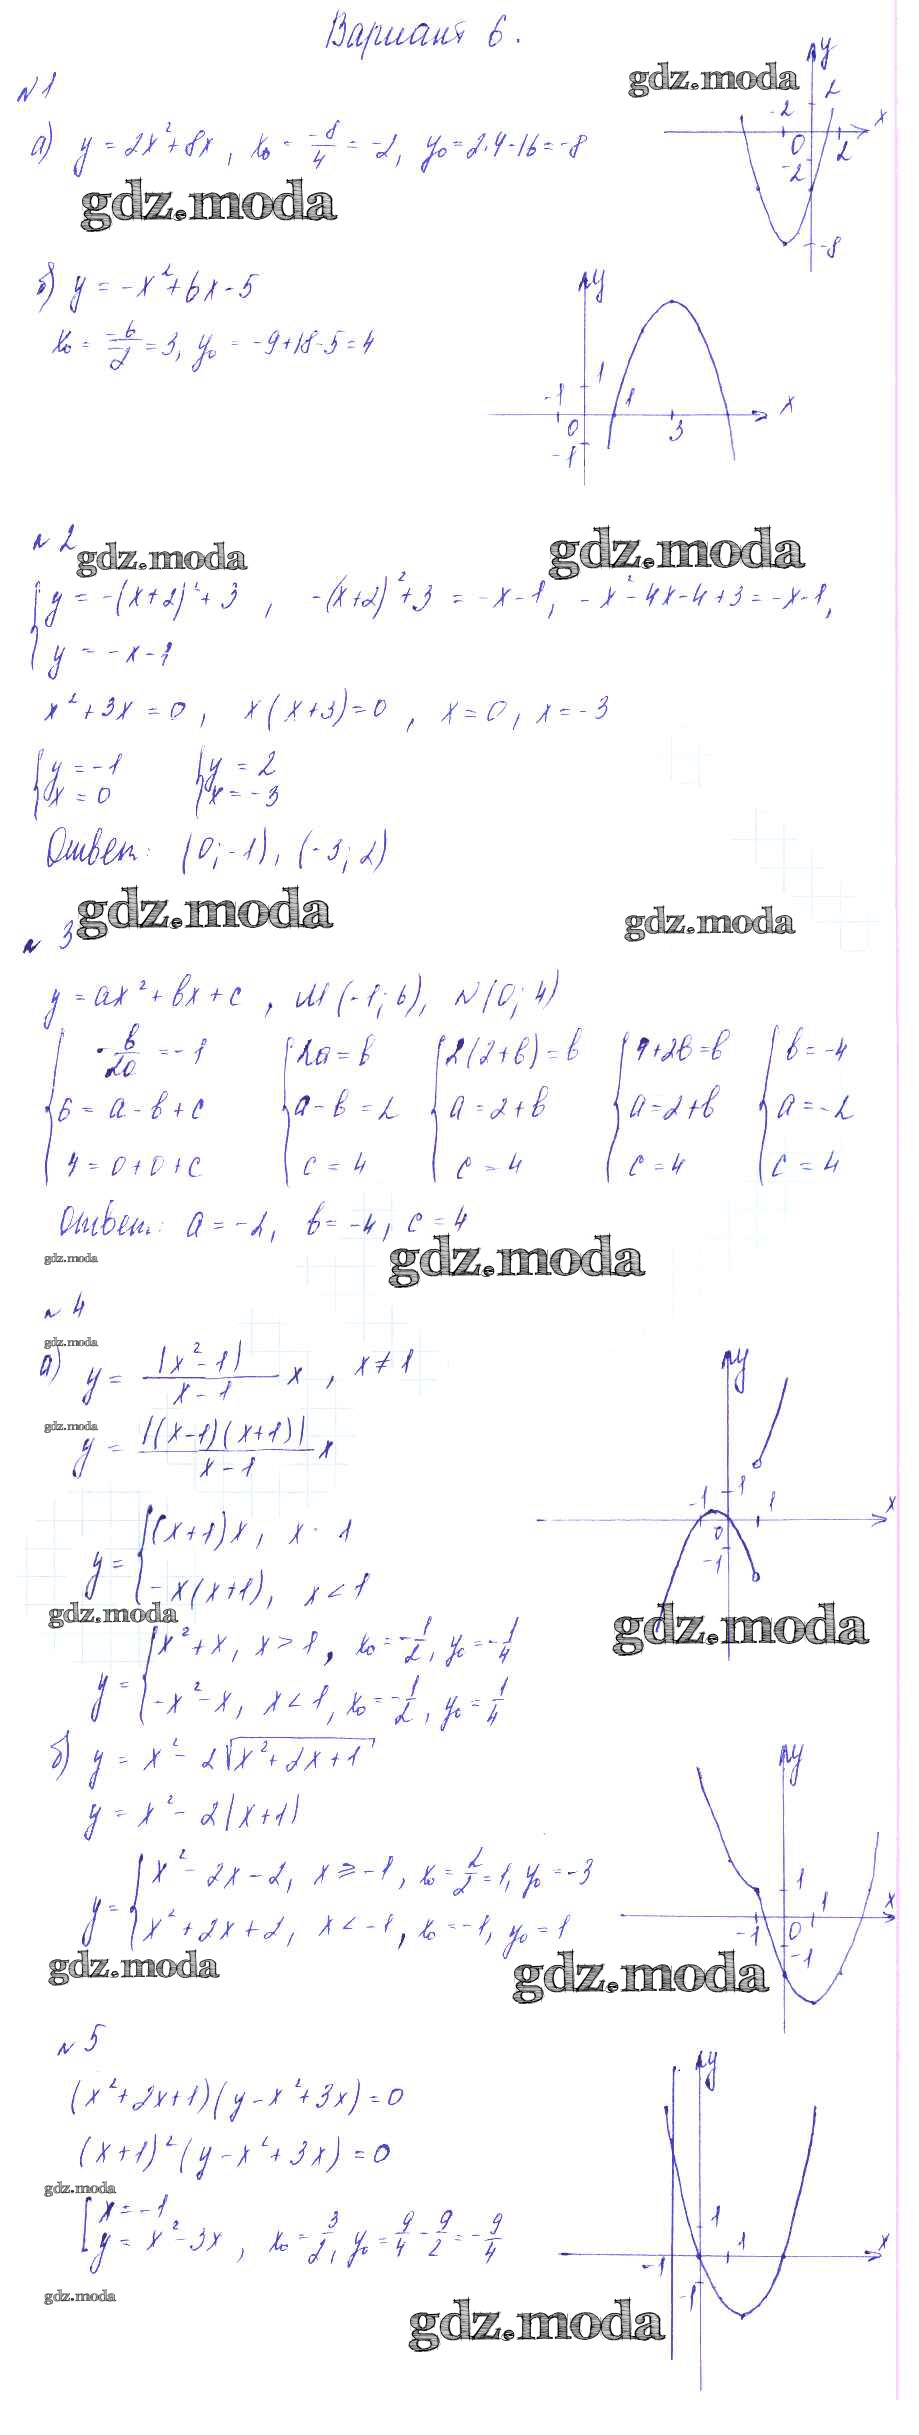 Вариант 6.
№1
gdz.moda
а) y = 2x²+8x, x₀ = -8/4 = -2, y₀=2·4-16=-8
y
2
-2
x
0
2
-2
-8
gdz.moda
б) y = -x²+6x-5
x₀ = -6/-2 = 3, y₀ = -9+18-5=4
y
-1
1
1
x
0
3
-1
№2
gdz.moda
gdz.moda
{ y = -(x+2)²+3, -(x+2)²+3 = -x-1, -x²-4x-4+3=-x-1,
y = -x-1
x²+3x=0, x(x+3)=0, x=0, x=-3
{ y=-1 { y=2
x=0 x=-3
Ответ: (0;-1), (-3;2)
gdz.moda
gdz.moda
№3
y=ax²+bx+c, M(-1;6), N(0;4)
{ -b/2a = -1 { 2a=b { 2(2+b)=b { 4+2b=b { b=-4
6=a-b+c a-b=2 a=2+b a=2+b a=-2
4=0+0+c c=4 c=4 c=4 c=4
Ответ: a=-2, b=-4, c=4
gdz.moda
gdz.moda
№4
gdz.moda
а) y = |x²-1|/(x-1) x, x≠1
gdz.moda
y = |(x-1)(x+1)|/(x-1) x
y = { (x+1)x, x 1
-x(x+1), x<1
gdz.moda
y = { x²+x, x>1, x₀=-1/2, y₀=-1/4
-x²-x, x<1, x₀=-1/2, y₀=1/4
y
-1
1
1
x
0
-1
gdz.moda
б) y = x²-2√(x²+2x+1)
y = x²-2|x+1|
y = { x²-2x-2, x≥-1, x₀=2/2=1, y₀=-3
x²+2x+2, x<-1, x₀=-1, y₀=1
y
1
1
x
-1
0
-1
gdz.moda
gdz.moda
№5
(x²+2x+1)(y-x²+3x)=0
(x+1)²(y-x²+3x)=0
gdz.moda
[ x=-1
y=x²-3x, x₀=3/2, y₀=9/4-9/2=-9/4
y
1
1
x
-1
-1
gdz.moda
gdz.moda